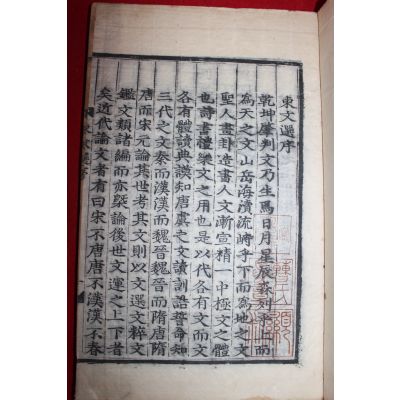 東文選序
乾坤肇判文乃生焉日月星辰森列乎上而
為天之文山岳海瀆流峙乎下而為地之文
聖人畫卦造書人文漸宣精一中極文之體
也詩書禮樂文之用也是以代各有文而文
各有體讀典謨知唐虞之文讀訓誥誓命知
三代之文秦而漢漢而魏晉魏晉而隋唐隋
唐而宋元論其世考其文則以文選文粹文
鑑文類諸編而亦槩論後世文運之上下者
矣近代論文者有曰宋不唐唐不漢漢不春